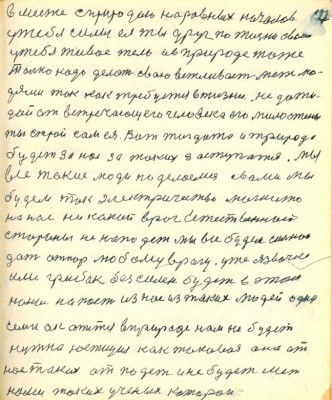 вместе с природою наровных началов
у тебя силы ея ты друг по жизни своей
у тебя живое тело и в природе тоже
только надо делать свою вежливость меж лю
дями так как требуется в жизни. не дожи
дай от встречающего человека его милостыни
ты строй сам ея. Вот тогда то и природа
будет за нас за таких заступатся. Мы
все такие люди поделаемся своими мы
будем так электричество магнито
на нас ни какой враг Естественной
стороны не нападет мы все будем сильно
дат отпор любому врагу. уже язвочка
или грыбок без силен будет в этом
нами напаст из нас из таких людей одна
семья он этти в природе нам не будет
нужна юстиция как таковая она от
нас таких отпадет и не будет меж
нами таких ученых которои